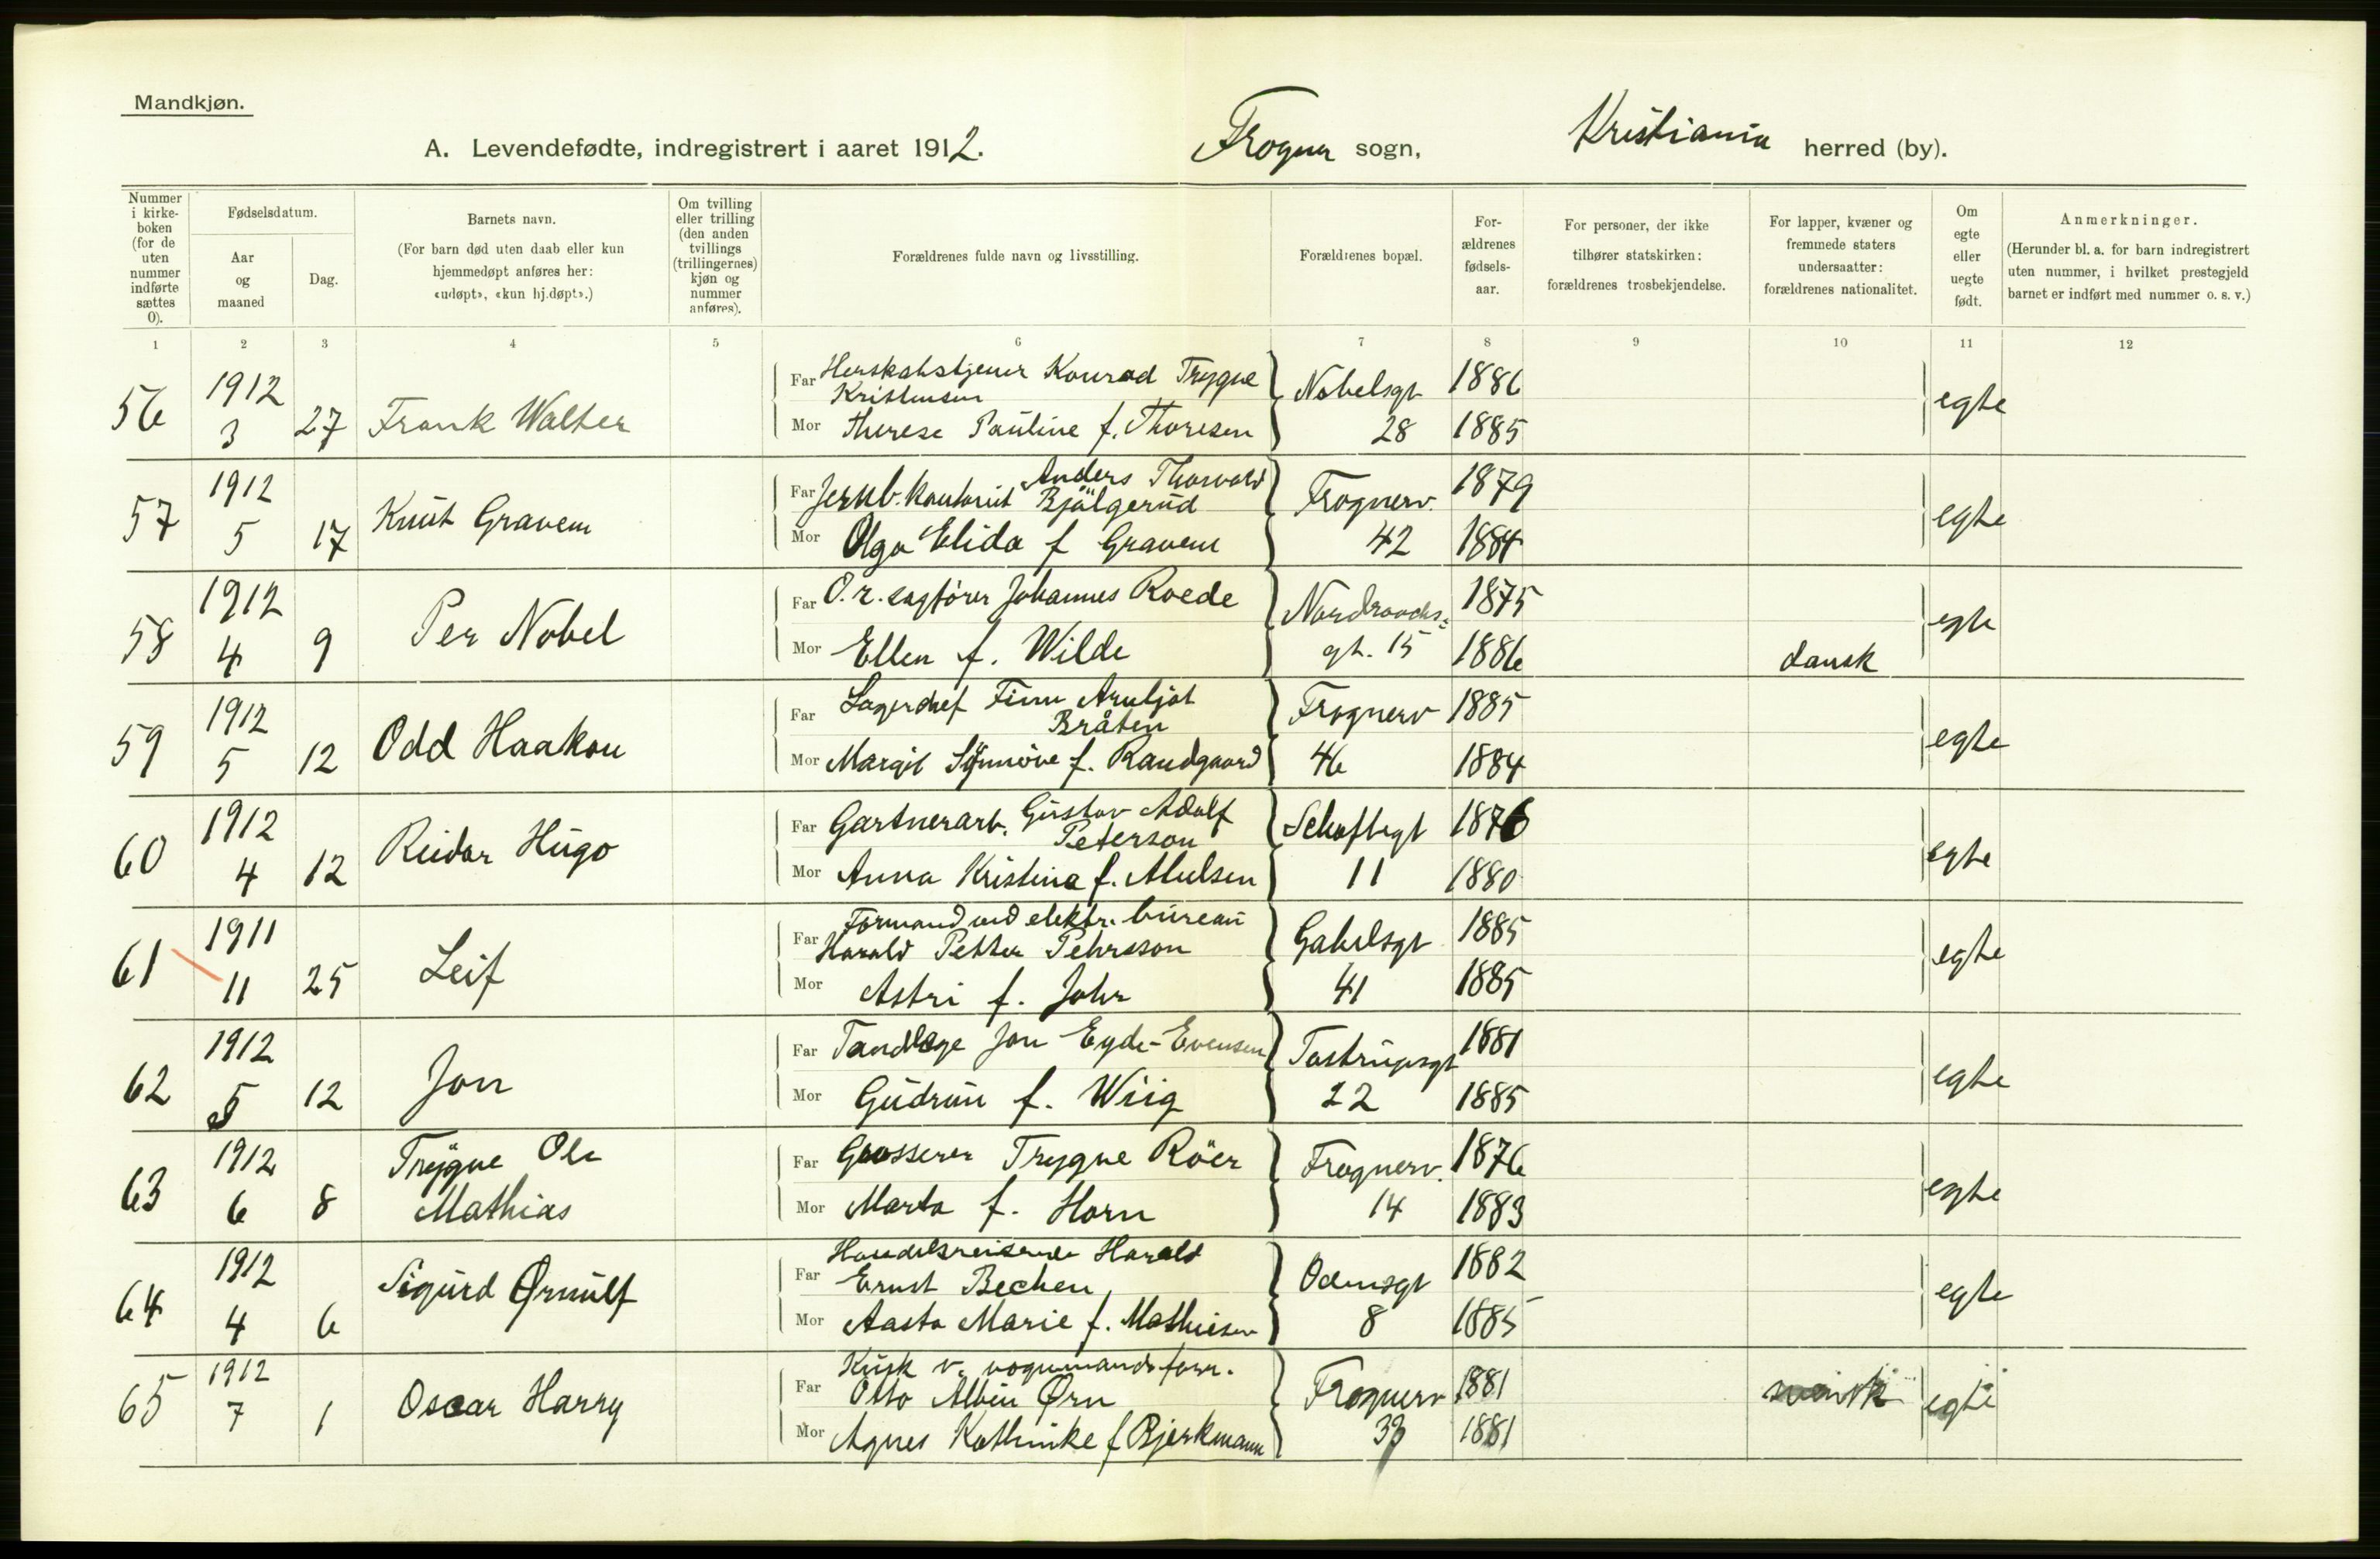 Mandkjøn.
A. Levendefødte, indregistrert i aaret 1912. Frogner sogn, Kristiania herred (by).
Nummer i kirke-boken (for de uten nummer indførte sættes 0).
Fødselsdatum.
Aar og maaned
Dag.
Barnets navn.
(For barn død uten daab eller kun hjemmedøpt anføres her: «udøpt», «kun hj.døpt».)
Om tvilling eller trilling (den anden tvillings (trillingernes) kjøn og nummer anføres).
Forældrenes fulde navn og livsstilling.
Forældrenes bopæl.
For-ældrenes fødsels-aar.
For personer, der ikke tilhører statskirken: forældrenes trosbekjendelse.
For lapper, kvæner og fremmede staters undersaatter: forældrenes nationalitet.
Om egte eller uegte født.
Anmerkninger.
(Herunder bl. a. for barn indregistrert uten nummer, i hvilket prestegjeld barnet er indført med nummer o. s. v.)
1 2 3 4 5 6 7 8 9 10 11 12
56 1912 3 27 Frank Walter
Far Herskabstjener Konrad Trygve Kristensen Nobelsgt 1886 egte
Mor Therese Pauline f. Thoresen 28 1885
57 1912 5 17 Knut Gravem
Far Jernb. kontorist Anders Thorvald Bjälgerud Frognerv. 1879 egte
Mor Olga Elida f Gravem 42 1884
58 1912 4 9 Per Nobel
Far O. r. sagfører Johannes Roede Nordraachs- 1875 egte
Mor Ellen f. Wilde gt. 15 1886 dansk
59 1912 5 12 Odd Haakon
Far Lagerchef Finn Arnljot Bråten Frognerv 1885 egte
Mor Margit Synnöve f. Randgaard 46 1884
60 1912 4 12 Reidar Hugo
Far Gartnerarb. Gustav Adolf Peterson Schaftsgt 1876 egte
Mor Anna Kristina f. 11 1880
61 1911 11 25 Leif
Far Formand ved elektr. bureau Harald Petter Pehrsson Gabelsgt 1885 egte
Mor Astri f. Johr 41 1885
62 1912 5 12 Jon
Far Tandlæge Jon Egde-Evensen Tostrupsgt 1881 egte
Mor Gudrun f. Wiig 22 1885
63 1912 6 8 Trygve Ole Mathias
Far Grosserer Trygve Röer Frognerv. 1876 egte
Mor Marta f. Horn 14 1883
64 1912 4 6 Sigurd Ørnulf
Far Handelsreisende Harald Ernst Bechen Odinsgt 1882 egte
Mor Aasta Marie f. Mathiesen 8 1885
65 1912 7 1 Oscar Harry
Far Kusk v. vognmandsforr. Otto Albin Ørn Frognerv 1881 svensk egte
Mor Agnes Kathinke f Bjerkmann 33 1881